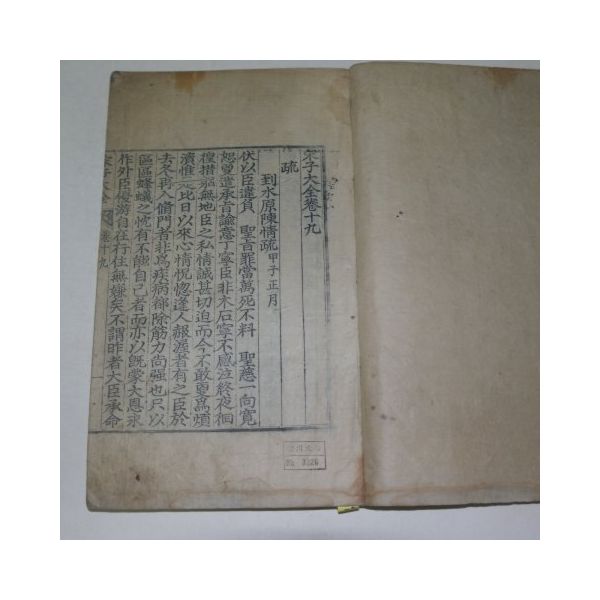 宋子大全卷十九
疏
到水原陳情疏 甲子正月
伏以臣違負 聖旨罪當萬死不料 聖慈一向寬
恕更遣承旨諭意丁寧臣非木石寧不感泣終夜徊
徨措躬無地臣之私情誠甚切迫而今不敢更爲煩
瀆惟是比日以來心情怳惚逢人報渥者有之臣於
去冬再入脩門者非爲疾病都除筋力尚强也只以
區區螻蟻之忱有不能自已者而亦以旣蒙大恩求
作外臣優游自在行住無嫌矣不謂昨者大臣承命
宋子大全 卷十九